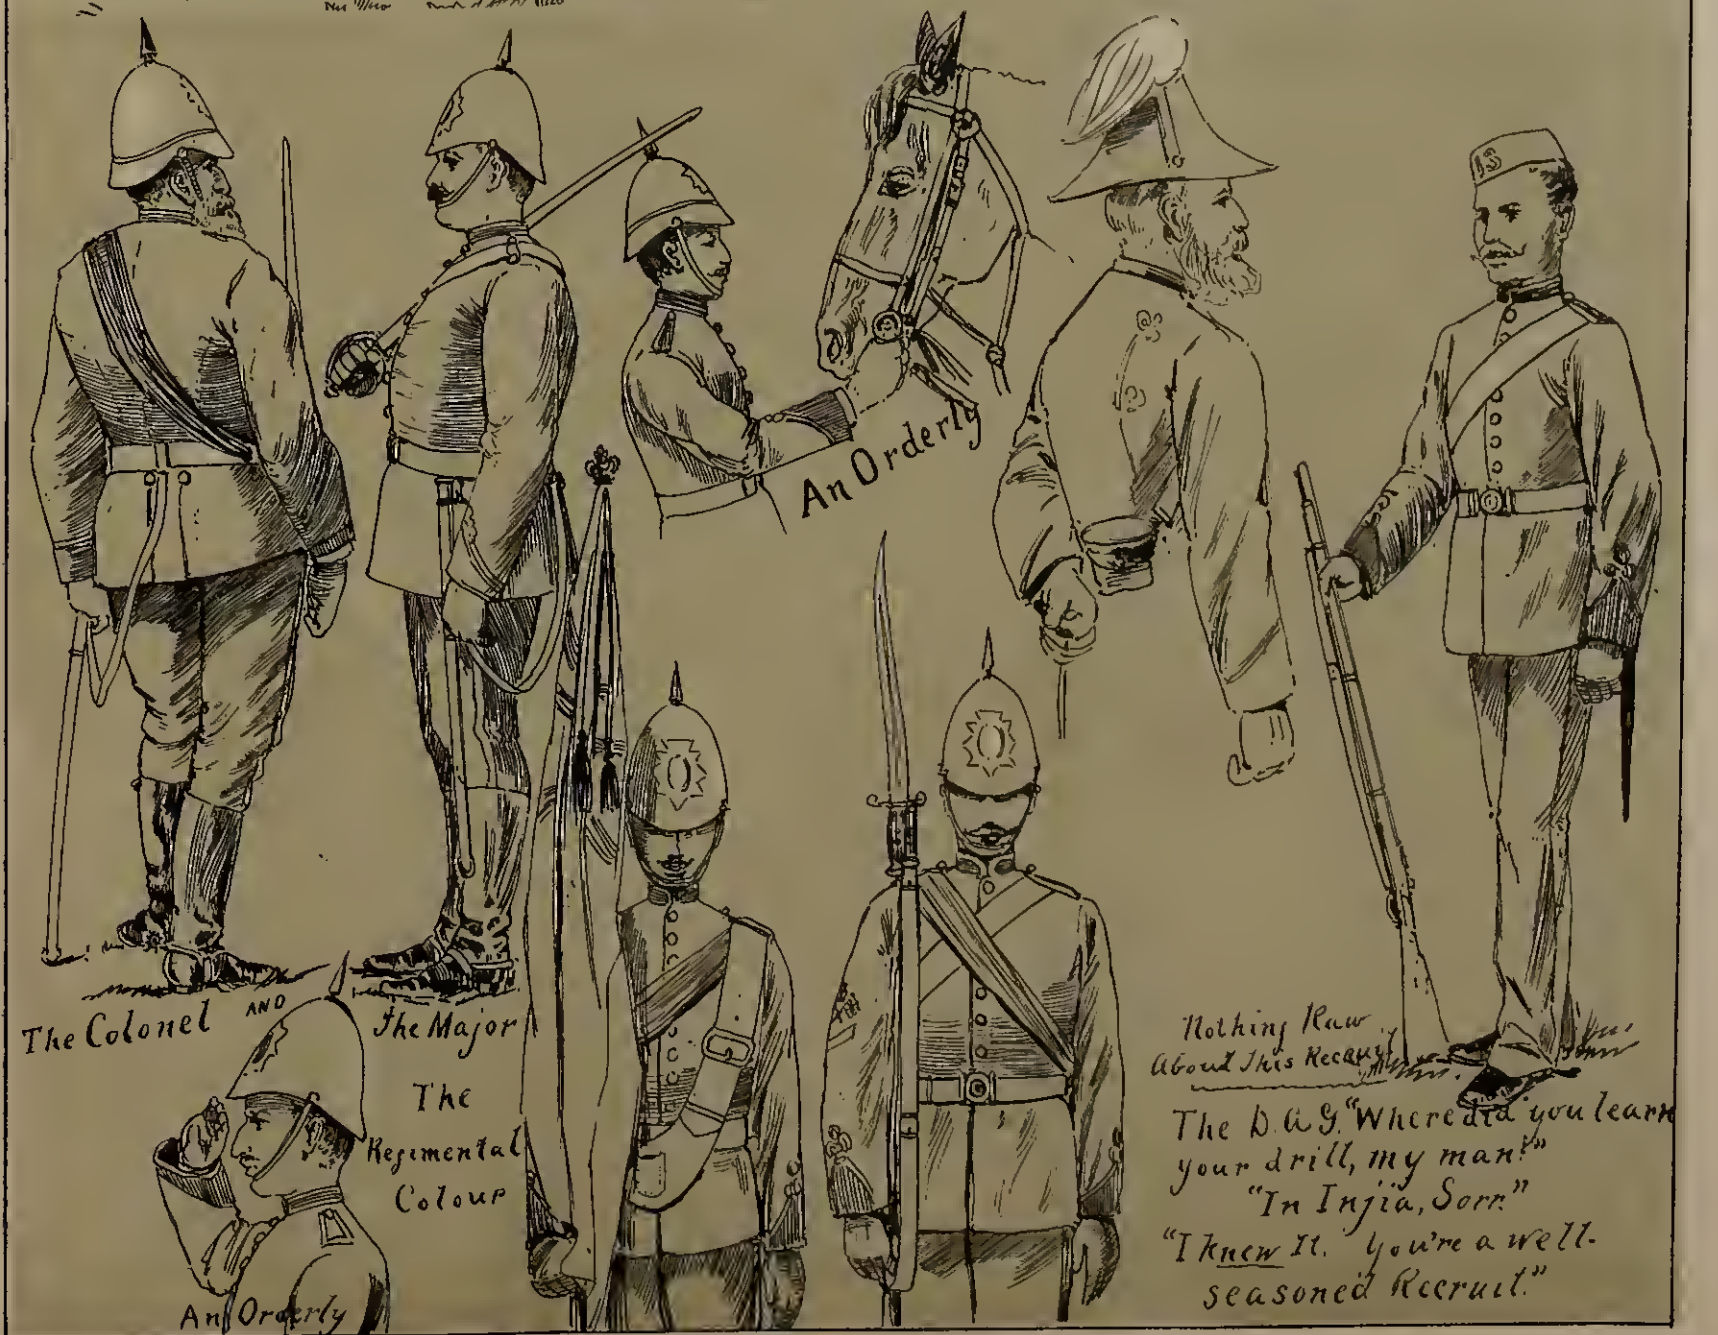 An Orderly
13
The Colonel AND The Major
The
Regimental
Colour
An Orderly
Nothing Raw
About This Recruit
The D.A.G. "Where did you learn
your drill, my man?"
"In Injia, Sorr."
"I knew It. You're a well-
seasoned Recruit."